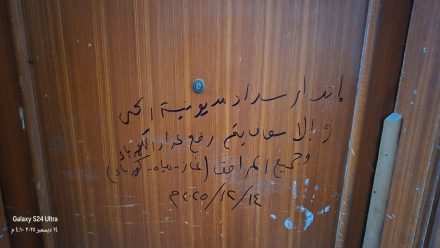 إنذار سداد مديونية الحى
وإلا سوف يتم رفع عداد الكهرباء
وجميع المرافق (غاز - مياه - كهرباء)
٢٠٢٥/١٢/١٤م
Galaxy S24 Ultra
١٤ ديسمبر ٢٠٢٥ ٤:١٠ م